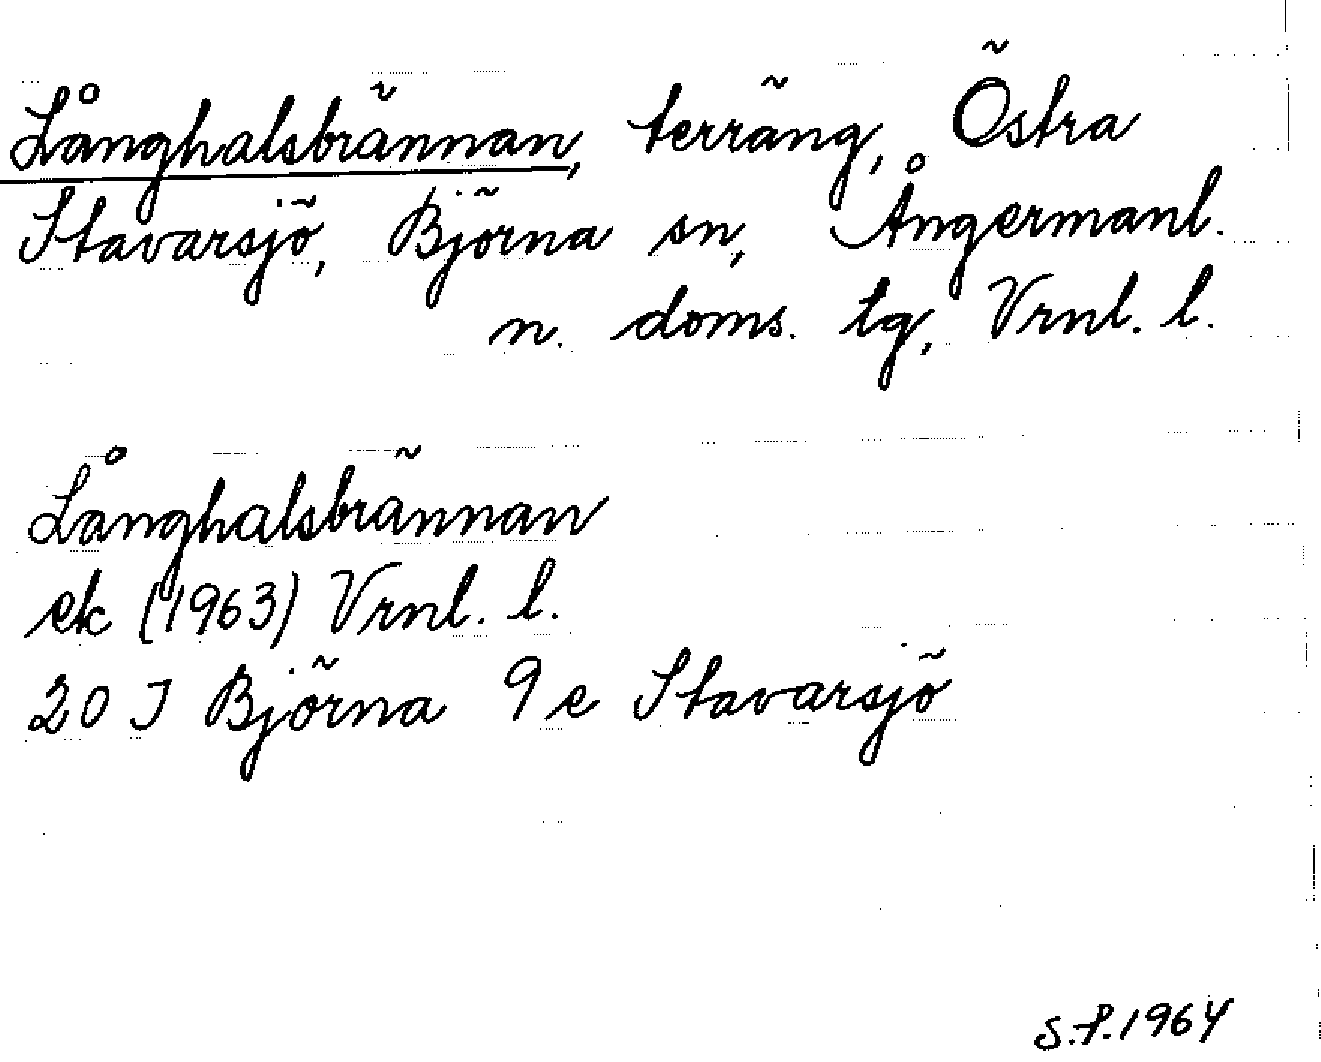 Långhalsbrännan, terräng, Östra
Stavarsjö, Björna sn, Ångermanl.
n. doms. tg, Vrnl. l.
Långhalsbrännan
ek (1963) Vrnl. l.
20 J Björna 9 e Stavarsjö
S.P. 1964